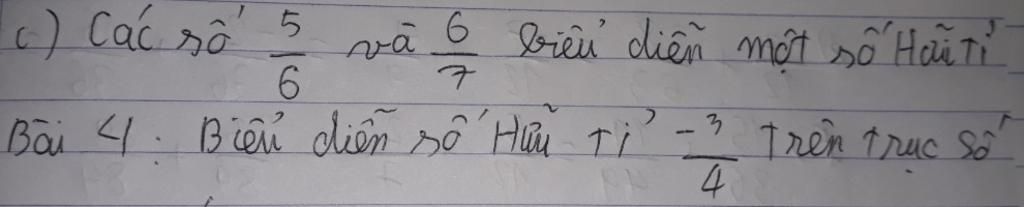 c) Các số 5/6 và 6/7 biểu diễn một số Hữu Tỉ
Bài 4: Biểu diễn số Hữu Tỉ -3/4 Trên Trục số